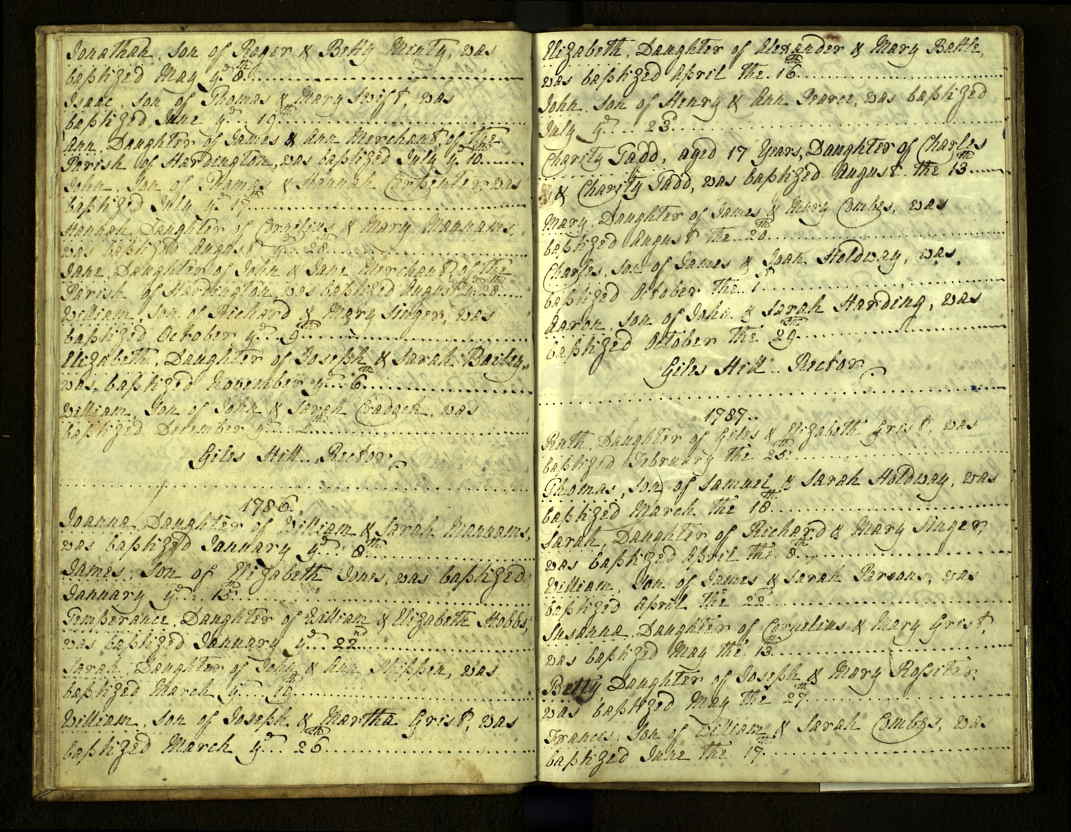 Jonathan, Son of Roger & Betty Minty, was
baptized May ye 8th
Isaac, Son of Thomas & Mary Swift, was
baptized June ye 19th
Ann, Daughter of James & Ann Merchant, of the
Parish of Hardington, was baptized July ye 10
John, Son of Thomas & Hannah Carpenter, was
baptized July ye
Hannah, Daughter of Cornelius & Mary Mannams,
was baptized August ye 28
Jane, Daughter of John & Jane Merchant, of the
Parish of Hardington, was baptized August ye 28
William, Son of Richard & Mary Singer, was
baptized October ye
Elizabeth, Daughter of Joseph & Sarah Bailey,
was baptized November ye 6th
William, Son of John & Sarah Cradock, was
baptized December ye
Giles Hill.. Rector
1786.
Joanna, Daughter of William & Sarah Mannams,
was baptized January ye 8th
James, Son of Elizabeth Ivies, was baptized
January ye 15th
Temperance, Daughter of William & Elizabeth Hobbs,
was baptized January ye 22nd
Sarah, Daughter of John & Ann Skippen, was
baptized March ye
William, Son of Joseph & Martha Grist, was
baptized March ye 26th
Elizabeth, Daughter of Alexander & Mary Battle,
was baptized April the 16th
John, Son of Henry & Ann Pearce, was baptized
July ye 23
Charity Tadd, aged 17 Years, Daughter of Charles
& Charity Tadd, was baptized August the 13th
Mary, Daughter of James & Mary Combes, was
baptized August the 20th
Charles, Son of James & Joan Holdway, was
baptized October the 1st
Aaron, Son of John & Sarah Harding, was
baptized October the 29th
Giles Hill.. Rector
1787.
Ruth, Daughter of Giles & Elizabeth Grist, was
baptized February the 25th
Thomas, Son of Samuel & Sarah Holdway, was
baptized March the 18th
Sarah, Daughter of Richard & Mary Singer,
was baptized April the 8th
William, Son of James & Sarah Parsons, was
baptized April the 22
Susanna, Daughter of Cornelius & Mary Grist,
was baptized May the 13
Betty Daughter of Joseph & Mary Rossiter,
was baptized May the 27th
Frances, Son of William & Sarah Combes, was
baptized June the 17th